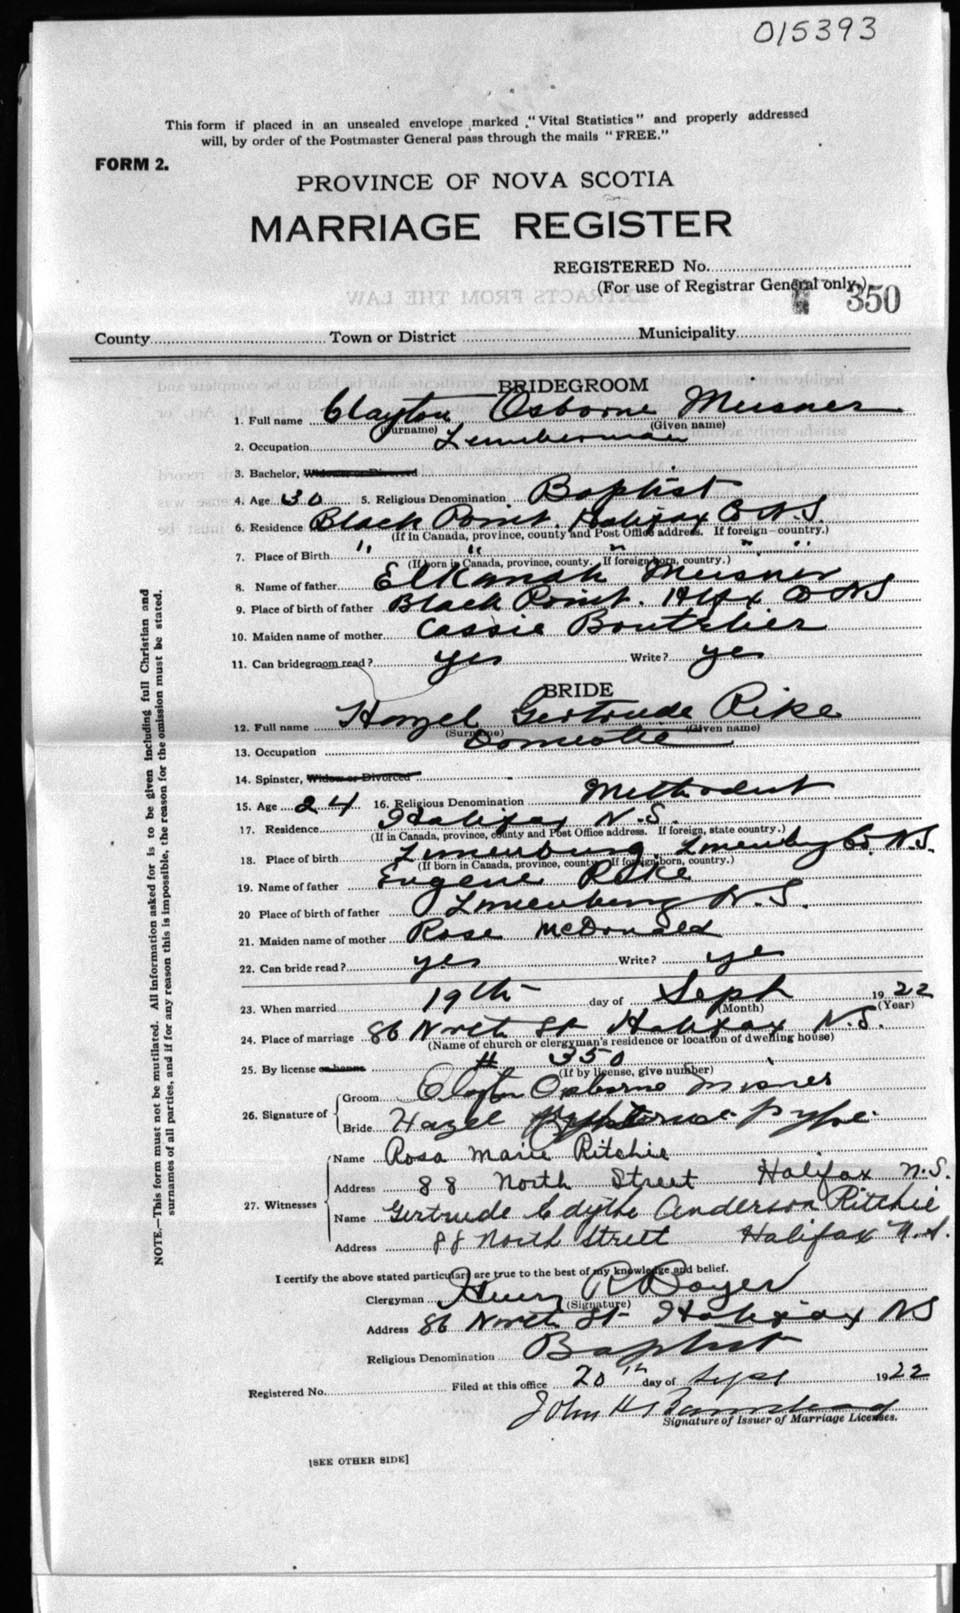 015393
This form if placed in an unsealed envelope marked "Vital Statistics" and properly addressed
will, by order of the Postmaster General pass through the mails "FREE."
FORM 2.
PROVINCE OF NOVA SCOTIA
MARRIAGE REGISTER
REGISTERED No.
(For use of Registrar General only.)
350
County Town or District Municipality
BRIDEGROOM
1. Full name Clayton Osborne Meisner
(Surname) (Given name)
2. Occupation Lumberman
3. Bachelor, Widower or Divorced
4. Age 30 5. Religious Denomination Baptist
6. Residence Black Point. Halifax Co N.S.
(If in Canada, province, county and Post Office address. If foreign country.)
7. Place of Birth " " " " "
(If born in Canada, province, county. If foreign born, country.)
8. Name of father Elkanah Meisner
9. Place of birth of father Black Point. Hlfx Co NS
10. Maiden name of mother Cassie Boutelier
11. Can bridegroom read? yes Write? yes
BRIDE
12. Full name Hazel Gertrude Pike
(Surname) (Given name)
13. Occupation Domestic
14. Spinster, Widow or Divorced
15. Age 24 16. Religious Denomination Methodist
17. Residence Halifax N.S.
(If in Canada, province, county and Post Office address. If foreign, state country.)
18. Place of birth Lunenburg, Lunenburg Co. N.S.
(If born in Canada, province, county. If foreign born, country.)
19. Name of father Eugene Pike
20 Place of birth of father Lunenburg N.S.
21. Maiden name of mother Rose McDonald
22. Can bride read? yes Write? yes
23. When married 19th day of Sept 1922
(Month) (Year)
24. Place of marriage 86 North St Halifax N.S.
(Name of church or clergyman's residence or location of dwelling house)
25. By license or banns # 350
(If by license, give number)
26. Signature of Groom Clayton Osborne Misner
Bride Hazel Pype
27. Witnesses Name Rosa Marie Ritchie
Address 88 North Street Halifax N.S.
Name Gertrude Edythe Anderson Ritchie
Address 88 North Street Halifax N.S.
I certify the above stated particulars are true to the best of my knowledge and belief.
Clergyman Henry R Boyer
(Signature)
Address 86 North St Halifax NS
Religious Denomination Baptist
Registered No. Filed at this office 20th day of Sept 1922
John H Barnstead
Signature of Issuer of Marriage Licenses.
[SEE OTHER SIDE]
NOTE.—This form must not be mutilated. All information asked for is to be given including full Christian and
surnames of all parties, and if for any reason this is impossible, the reason for the omission must be stated.